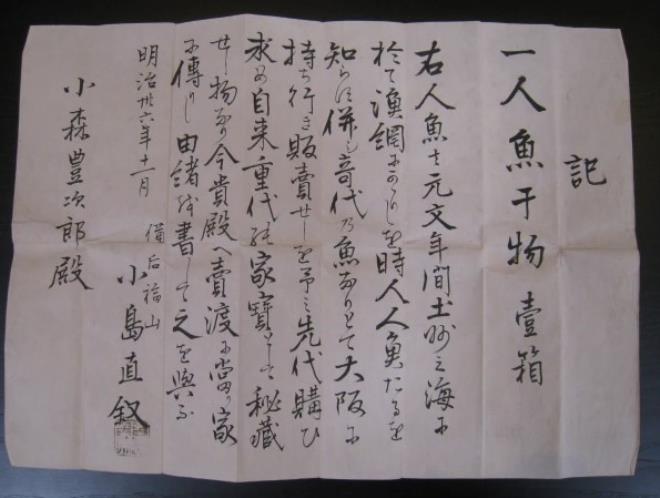 記
一人魚干物壹箱
右人魚ハ元文年間土州之海に
於て漁網にかゝりしを時人人魚たるを
知らす併し奇代乃魚なりとて大阪に
持ち行き販賣せしを予之先代購ひ
求め自来重代能家寶として秘藏
せし物なり今貴殿へ賣渡に當り家
に傳りし由緒を書して之を與ふ
明治卅六年十二月
備后福山
小島直
小森豊次郎殿